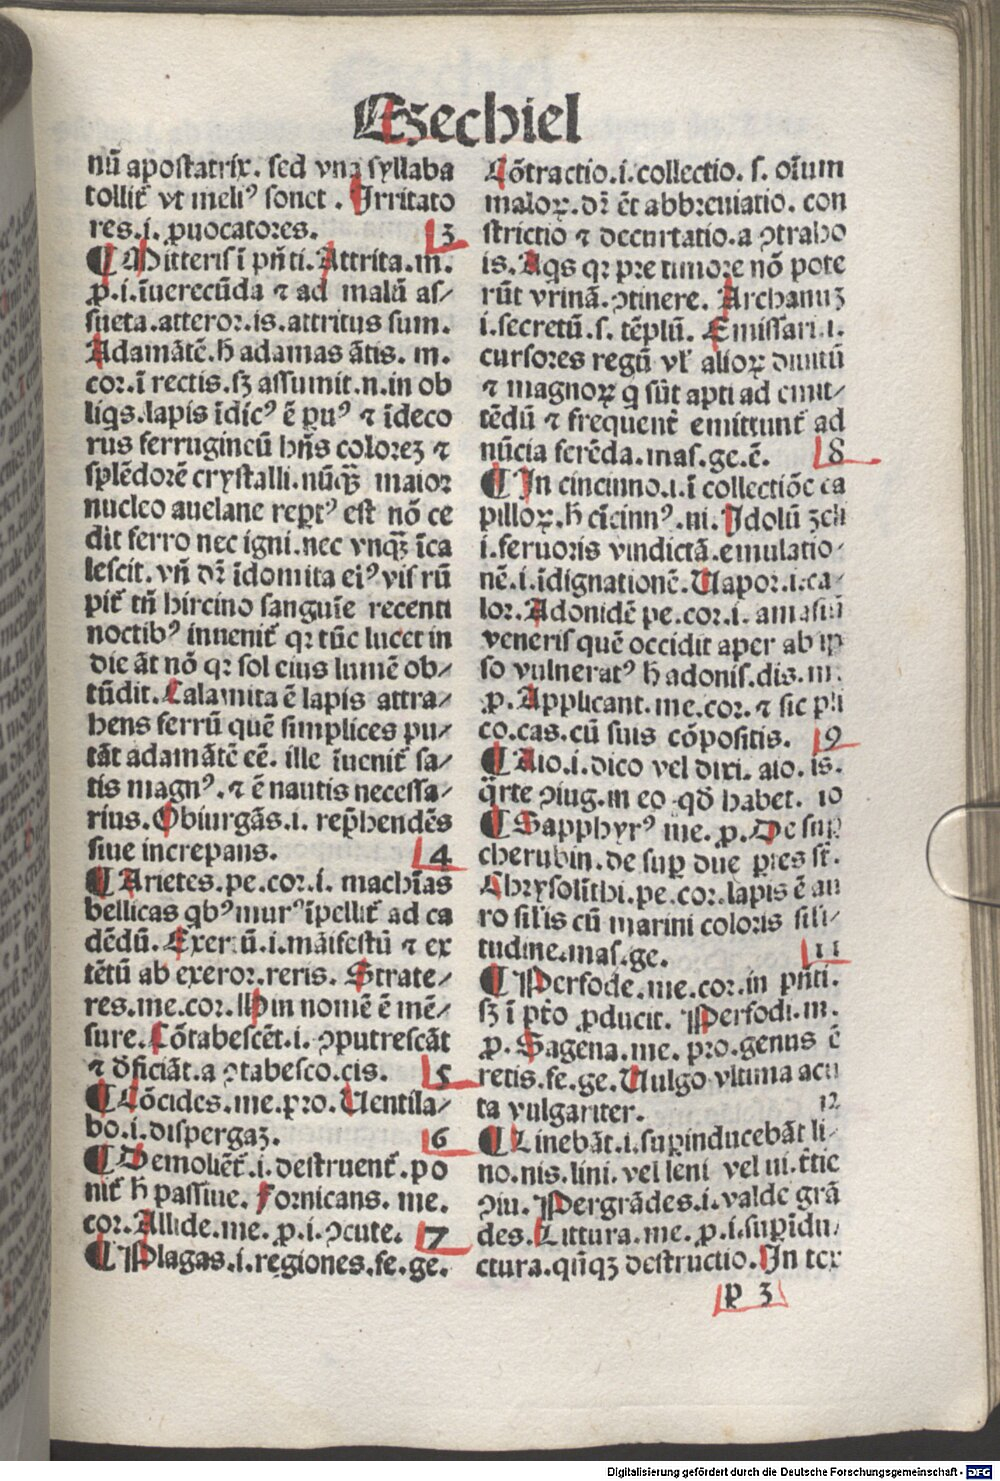 Ezechiel
nū apostatrix. sed vna syllaba
tollit᷑ vt meliꝰ sonet. Irritato
res.i. ꝓuocatores. 3
¶ Mitteris ī pn̄ti. Attrita.m.
ꝓ.i.īuerecūda ⁊ ad malū as/
sueta.atteror.is.attritus sum.
Adamātē.h̄ adamas ātis. m.
cor.ī rectis.sꝫ assumit.n.in ob
liq̄s.lapis īdicꝰ ē ꝑuꝰ ⁊ īdeco
rus ferrugineū hn̄s coloreꝫ ⁊
splēdorē crystalli.nūqꝫ̄ maior
nucleo auelane reptꝰ est nō ce
dit ferro nec igni.nec vnqꝫ̄ īca
lescit.vn̄ dr̄ īdomita eiꝰ vis rū
pit᷑ tn̄ hircino sanguīe recenti
noctibꝰ inuenit᷑ qꝛ tūc lucet in
die āt nō qꝛ sol eius lumē ob/
tūdit. Calamita ē lapis attra/
hens ferrū quē simplices pu/
tāt adamātē eē. ille īuenit᷑ sa/
tis magnꝰ.⁊ ē nautis necessa/
rius. Obiurgās.i. rep̄hendēs
siue increpans. 4
¶ Arietes.pe.cor.i. machīas
bellicas qbꝰ murꝰ īpellit᷑ ad ca
dēdū. Exertū.i.māifestū ⁊ ex
tētū ab exeror.reris. Strate/
res.me.cor. Hin nomē ē mē/
sure. Cōtabescēt.i. ꝯputrescāt
⁊ d̄ficiāt.a ꝯtabesco.cis. 5
¶ Cōcides.me.pro. Uentila/
bo.i.dispergaꝫ. 6
¶ Demoliēt᷑.i.destruent᷑.po
nit᷑ h̄ passiue. Fornicans. me.
cor. Allide.me. ꝓ.i.ꝯcute. 7
¶ Plagas.i.regiones.fe.ge.
Cōtractio.i.collectio. s. oīum
maloꝝ.dr̄ ēt abbreuiatio. con
strictio ⁊ decurtatio.a ꝯtraho
is. Aq̄s qꝛ pre timore nō pote
rūt vrinā.ꝯtinere. Archanuꝫ
i.secretū.s.tēplū. Emissarii.i.
cursores regū vl᷑ alioꝝ diuitū
⁊ magnoꝝ q̄ sūt apti ad emit/
tēdū ⁊ frequent᷑ emittunt᷑ ad
nūcia ferēda.mas.ge.ē. 8
¶ In cincinno.i.ī collectiōe ca
pilloꝝ.h̄ cīcinnꝰ.ni. Idolū ꝫeli
i.feruoris vindictā.emulatio
nē.i.īdignationē. Uapor.i.ca/
lor. Adonidē pe.cor.i. amasiū
veneris quē occidit aper ab ip
so vulneratꝰ h̄ adonis.dis.m.
ꝓ. Applicant.me.cor.⁊ sic pli
co.cas.cū suis cōpositis. 9
¶ Aio.i.dico vel dixi. aio. is.
q̄rte ꝯiug.m eo qd̄ habet. 10
¶ Sapphyrꝰ me. ꝓ. De sup
cherubin.de suꝑ due ꝑtes st̄.
Chrysolīthi.pe.cor.lapis ē au
ro sil̄is cū marini coloris sili/
tudine.mas.ge. 11
¶ Perfode.me.cor.in pn̄ti.
sꝫ ī pt̄o ꝓducit. Perfodi.m.
ꝓ. Sagena.me. pro.genus ē
retis.fe.ge. Uulgo vltima acu
ta vulgariter. 12
¶ Linebāt.i.suꝑinducebāt li/
no.nis.lini. vel leni vel iui.t᷑tie
ꝯiu. Pergrādes.i.valde grā
des. Littura.me. ꝓ.i.suꝑīdu/
ctura.qn̄qꝫ destructio. In tex
p 3
Digitalisierung gefördert durch die Deutsche Forschungsgemeinschaft - DFG